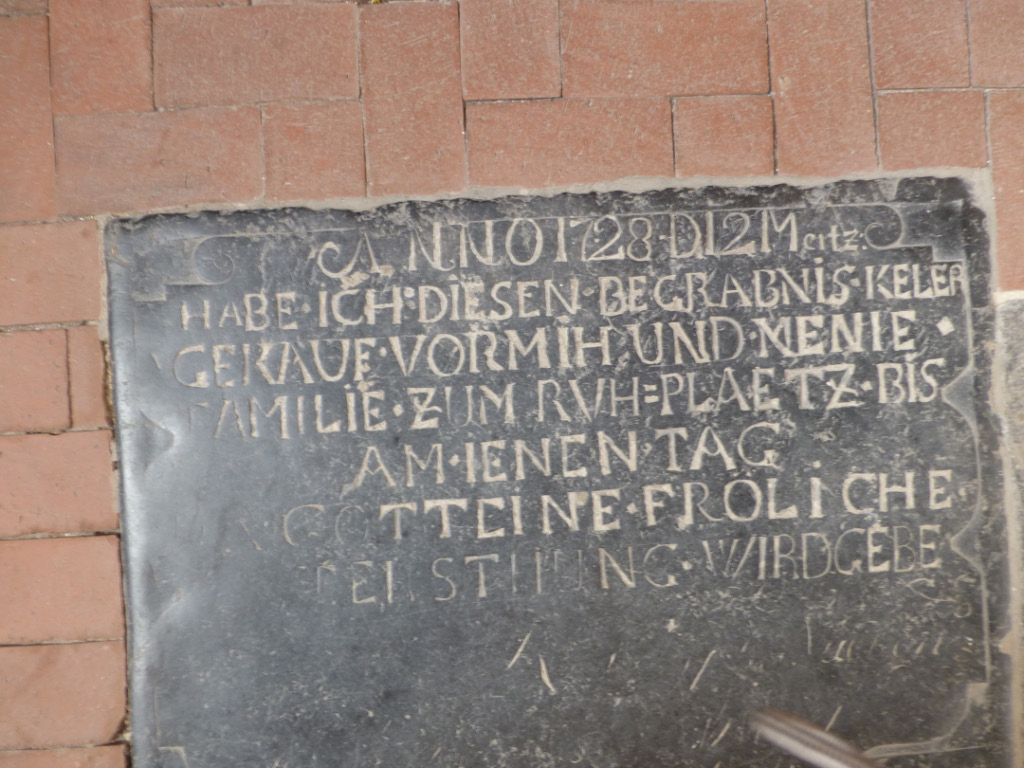 ANNO 1728 · D 12 Mertz:
HABE · ICH · DIESEN · BEGRABNIS · KELER
GEKAUF · VOR MIH UND · MEINE ·
FAMILIE · ZUM RVH=PLAETZ · BIS
AM · IENEN · TAG
GOTT EINE · FRÖLICHE ·
WIRD GEBE